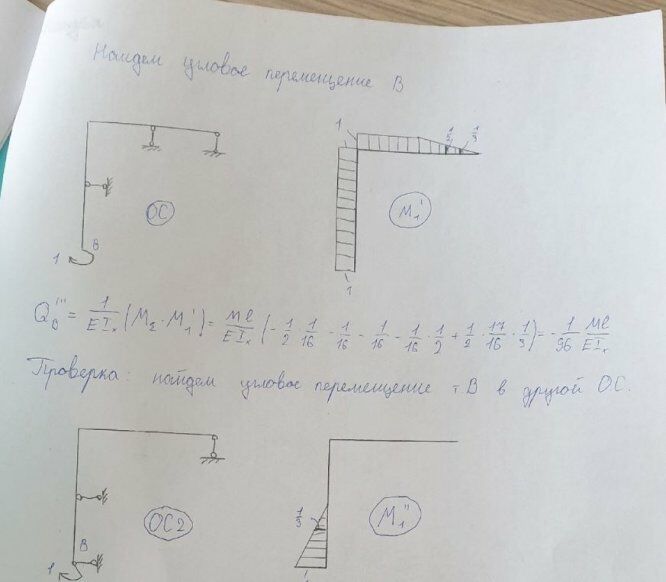 Найдем угловое перемещение В
1
1/2
1/3
1
ОС
М₁'
В
1
1
Q_B''' = 1/EIₓ (M₂·M₁') = Ml/EIₓ (-1/2·1/16 - 1/16 - 1/16 - 1/16·1/2 + 1/2·17/16·1/3) = -1/96 Ml/EIₓ
Проверка: найдем угловое перемещение т.В в другой О.С.
1/3
ОС2
М₁''
В
1
1